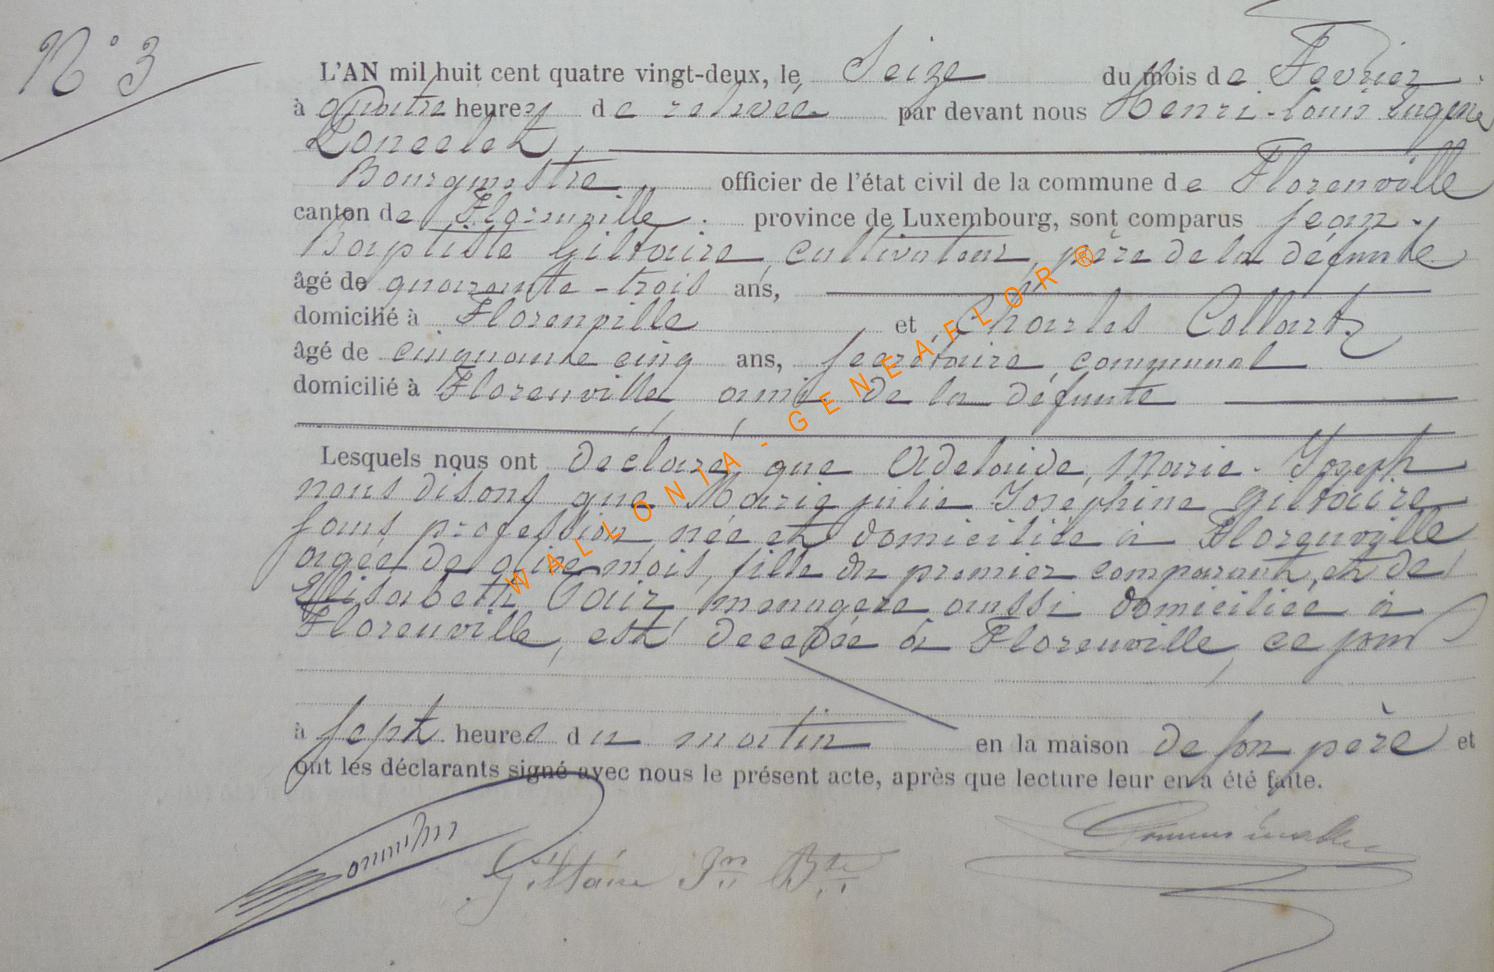 N° 3
L'AN mil huit cent quatre vingt-deux, le Seize du mois de Fevrier
à quatre heures de relevée par devant nous Henri-Louis Eugène
Poncelet,
Bourgmestre officier de l'état civil de la commune de Florenville
canton de Florenville. province de Luxembourg, sont comparus Jean-
Baptiste Giltaire, cultivateur, père de la défunte
âgé de quarante-trois ans,
domicilié à Florenville et Charles Collart,
âgé de cinquante cinq ans, secrétaire communal
domicilié à Florenville ami de la défunte
Lesquels nous ont déclaré que Adelaide, Marie-Joseph
nous disons que Marie Julie Josephine Giltaire
sans profession née et domiciliée à Florenville
agée de mois, fille du premier comparant, et de
Elisabeth menagère aussi domiciliée à
Florenville, est decedée à Florenville, ce jour
à sept heures du matin en la maison de son père et
ont les déclarants signé avec nous le présent acte, après que lecture leur en a été faite.
Giltaire Jn Bte
WALLONIA - GENEAFLOR ®